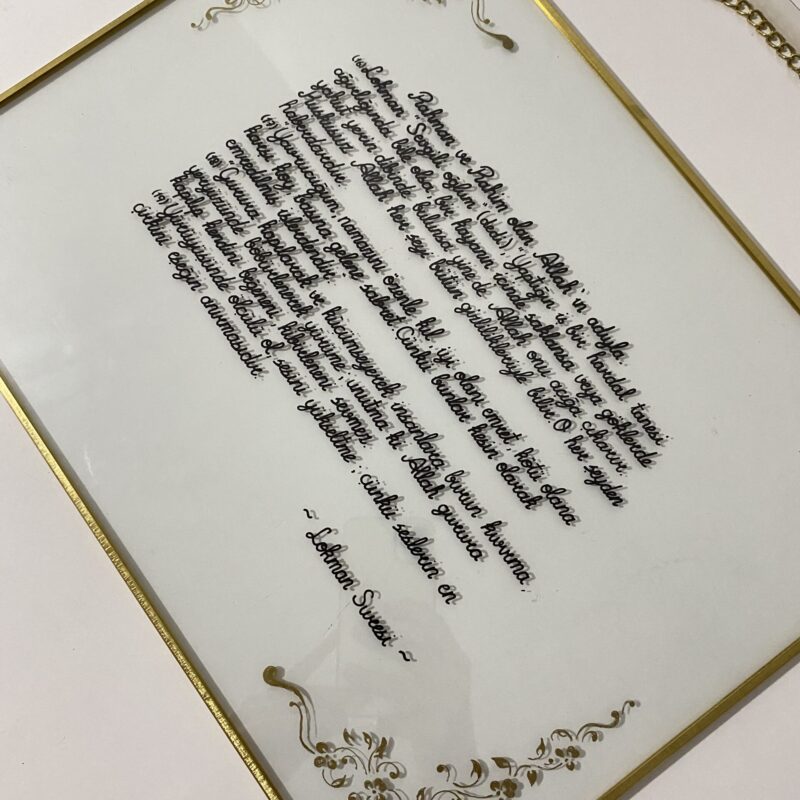 Rahman ve Rahim olan Allah'ın adıyla;
(16)Lokman, "Sevgili oğlum" (dedi) "Yaptığın iş bir hardal tanesi
ağırlığında bile olsa, bir kayanın içinde saklansa veya göklerde
yahut yerin dibinde bulunsa yine de Allah onu açığa çıkarır.
Kuşkusuz Allah her şeyi bütün gizlilikleriyle bilir. O her şeyden
haberdardır.
(17)"Yavrucuğum, namazını özenle kıl, iyi olanı emret, kötü olana
karşı koy, başına gelene sabret. Çünkü bunlar kesin olarak
emredilmiş işlerdendir.
(18) Gurura kapılarak ve küçümseyerek insanlara burun kıvırma;
yeryüzünde böbürlenerek yürüme; unutma ki Allah gurura
kendini beğenmiş sevmez.
(19)Yürüyüşünde ölçülü ol, sesini yükseltme; çünkü seslerin en
çirkini eşeğin anırmasıdır.
~ Lokman Suresi ~